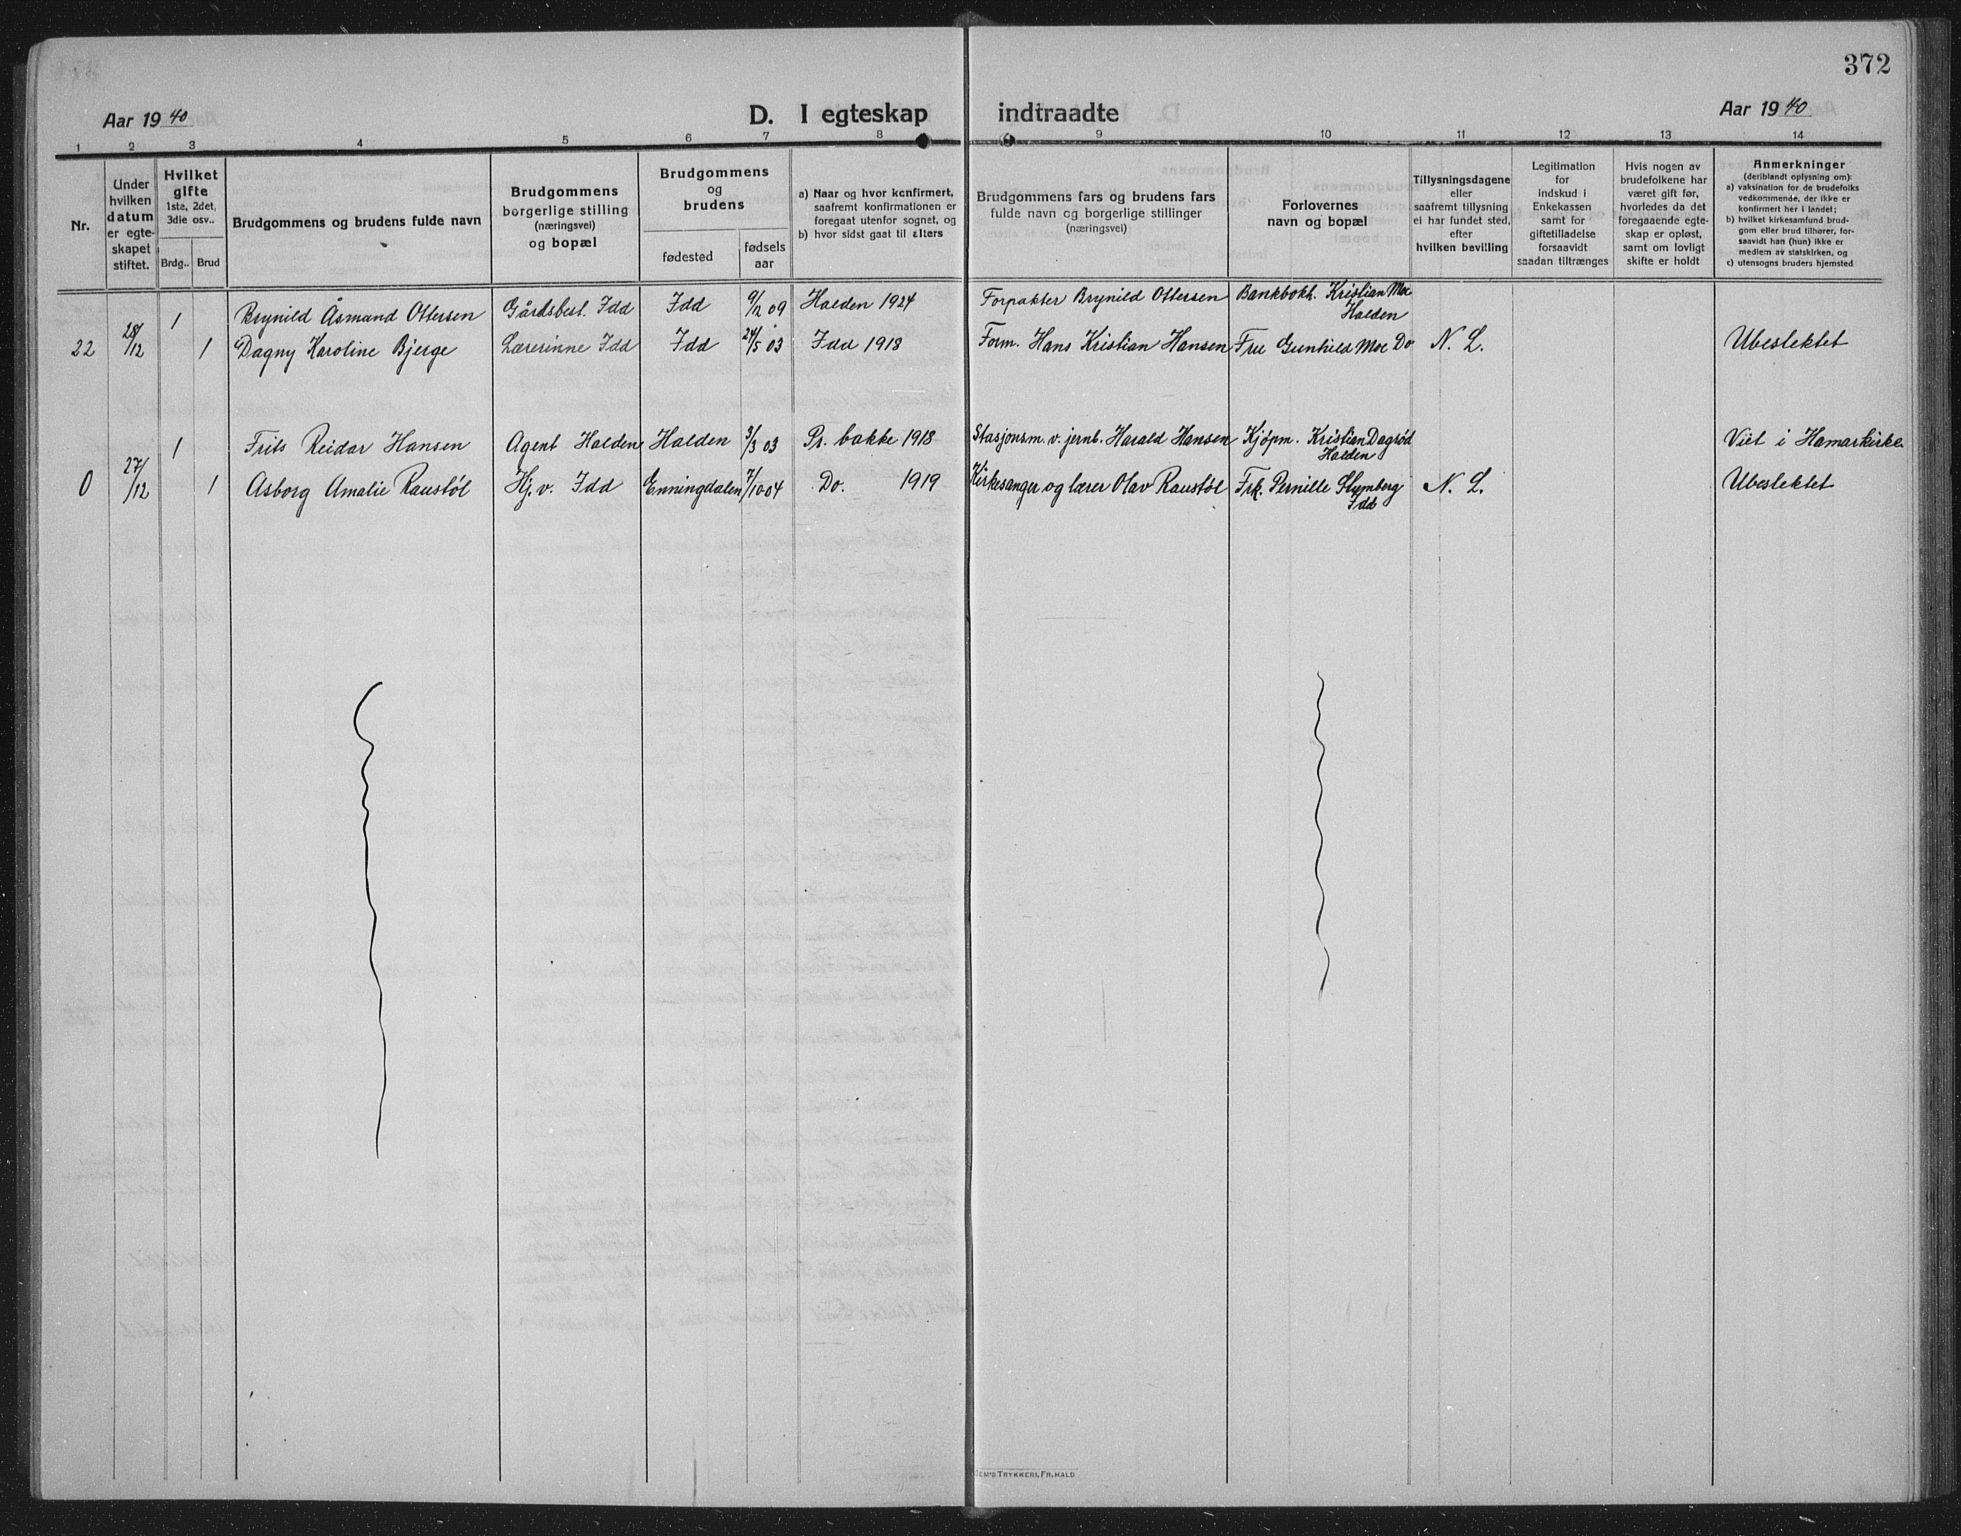 372
Aar 1940
D. I egteskap indtraadte
Aar 1940
1 2 3 4 5 6 7 8 9 10 11 12 13 14
Nr.
Under hvilken datum er egteskapet stiftet.
Hvilket gifte 1ste, 2det, 3die osv..
Brdg.. Brud
Brudgommens og brudens fulde navn
Brudgommens borgerlige stilling (næringsvei) og bopæl
Brudgommens og brudens
fødested
fødsels aar
a) Naar og hvor konfirmert, saafremt konfirmationen er foregaat utenfor sognet, og
b) hvor sidst gaat til alters
Brudgommens fars og brudens fars fulde navn og borgerlige stillinger (næringsvei)
Forlovernes navn og bopæl
Tillysningsdagene eller saafremt tillysning ei har fundet sted, efter hvilken bevilling
Legitimation for indskud i Enkekassen samt for giftetilladelse forsaavidt saadan tiltrænges
Hvis nogen av brudefolkene har været gift før, hvorledes da det foregaaende egteskap er opløst, samt om lovligt skifte er holdt
Anmerkninger
(deriblandt oplysning om):
a) vaksination for de brudefolks vedkommende, der ikke er konfirmert her i landet;
b) hvilket kirkesamfund brudgom eller brud tilhører, forsaavidt han (hun) ikke er medlem av statskirken, og
c) utensogns bruders hjemsted
1 Brynild Åsmund Ottersen Gårdsbest. Idd Idd 9/12 09 Halden 1924 Forpakter Brynild Ottersen Bankbokh. Kristian Moe Halden
22 28/12 1 Dagny Karoline Bjerge Lærerinne Idd Idd 24/5 03 Idd 1918 Form. Hans Kristian Hansen Fru Gunhild Moe Do N. L. Ubeslektet
1 Frits Reidar Hansen Agent Halden Halden 3/3 03 Pr. bakke 1918 Stasjonsm. v. jernb. Harald Hansen Kjøpm. Kristian Dagsød Halden Viet i Hamarkirke
0 27/12 1 Asborg Amalie Raustøl Hj. v. Idd Enningdalen 7/10 04 Do. 1919 Kirkesanger og lærer Olav Raustøl Frk. Pernille Idd N. L. Ubeslektet
SEM'S TRYKKERI, FR.HALD